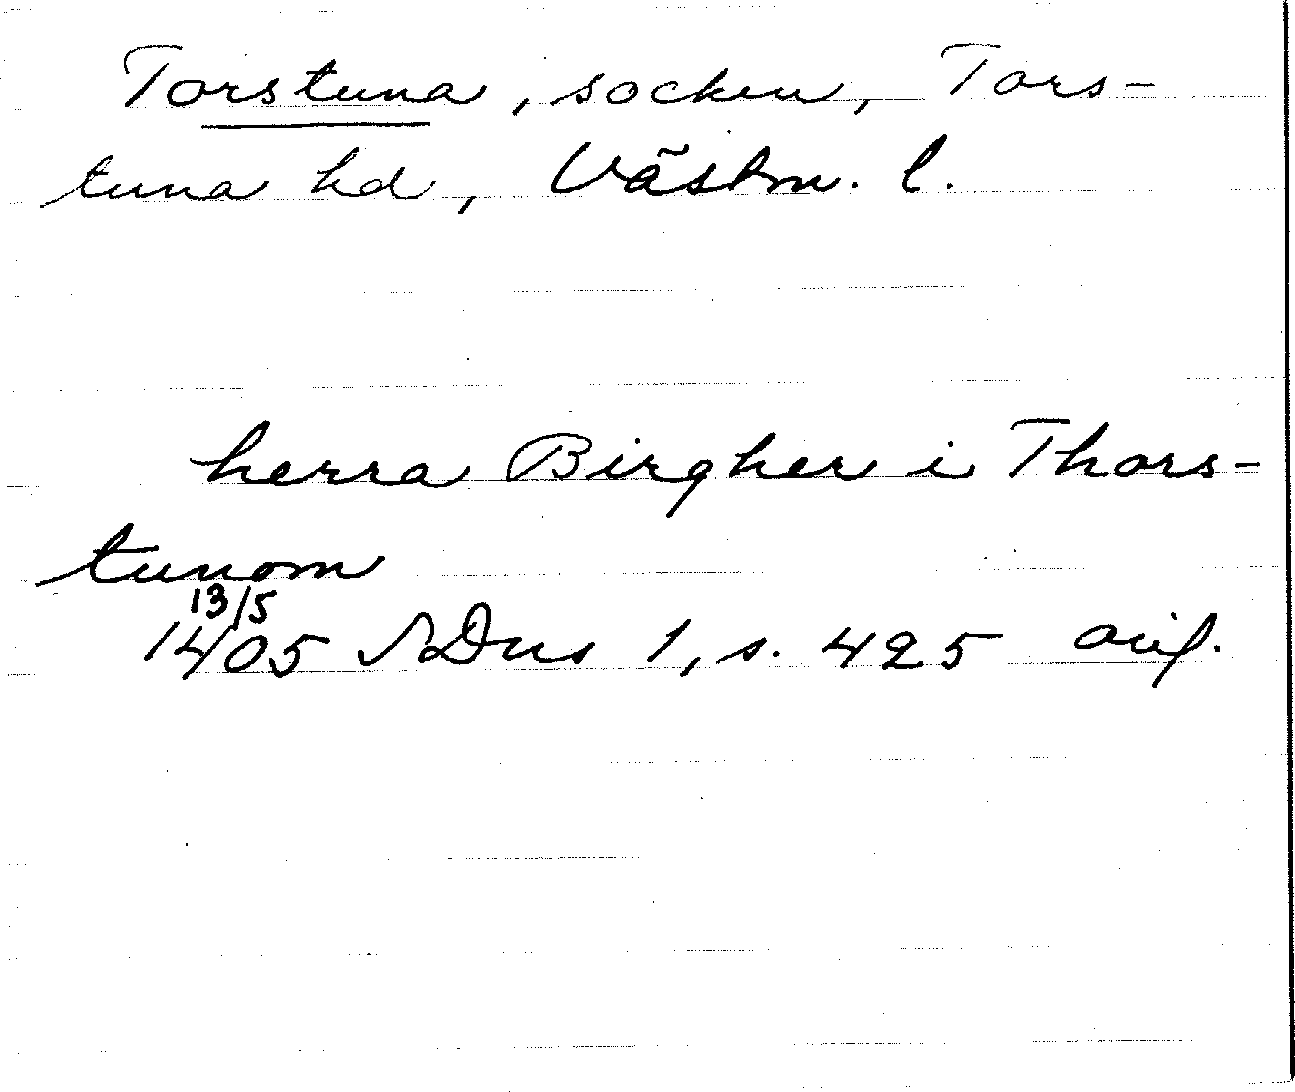 Torstuna, socken, Tors-
tuna hd, Västm. l.
herra Birgher i Thors-
tunom
13/5
1405 SDns 1, s. 425 orig.